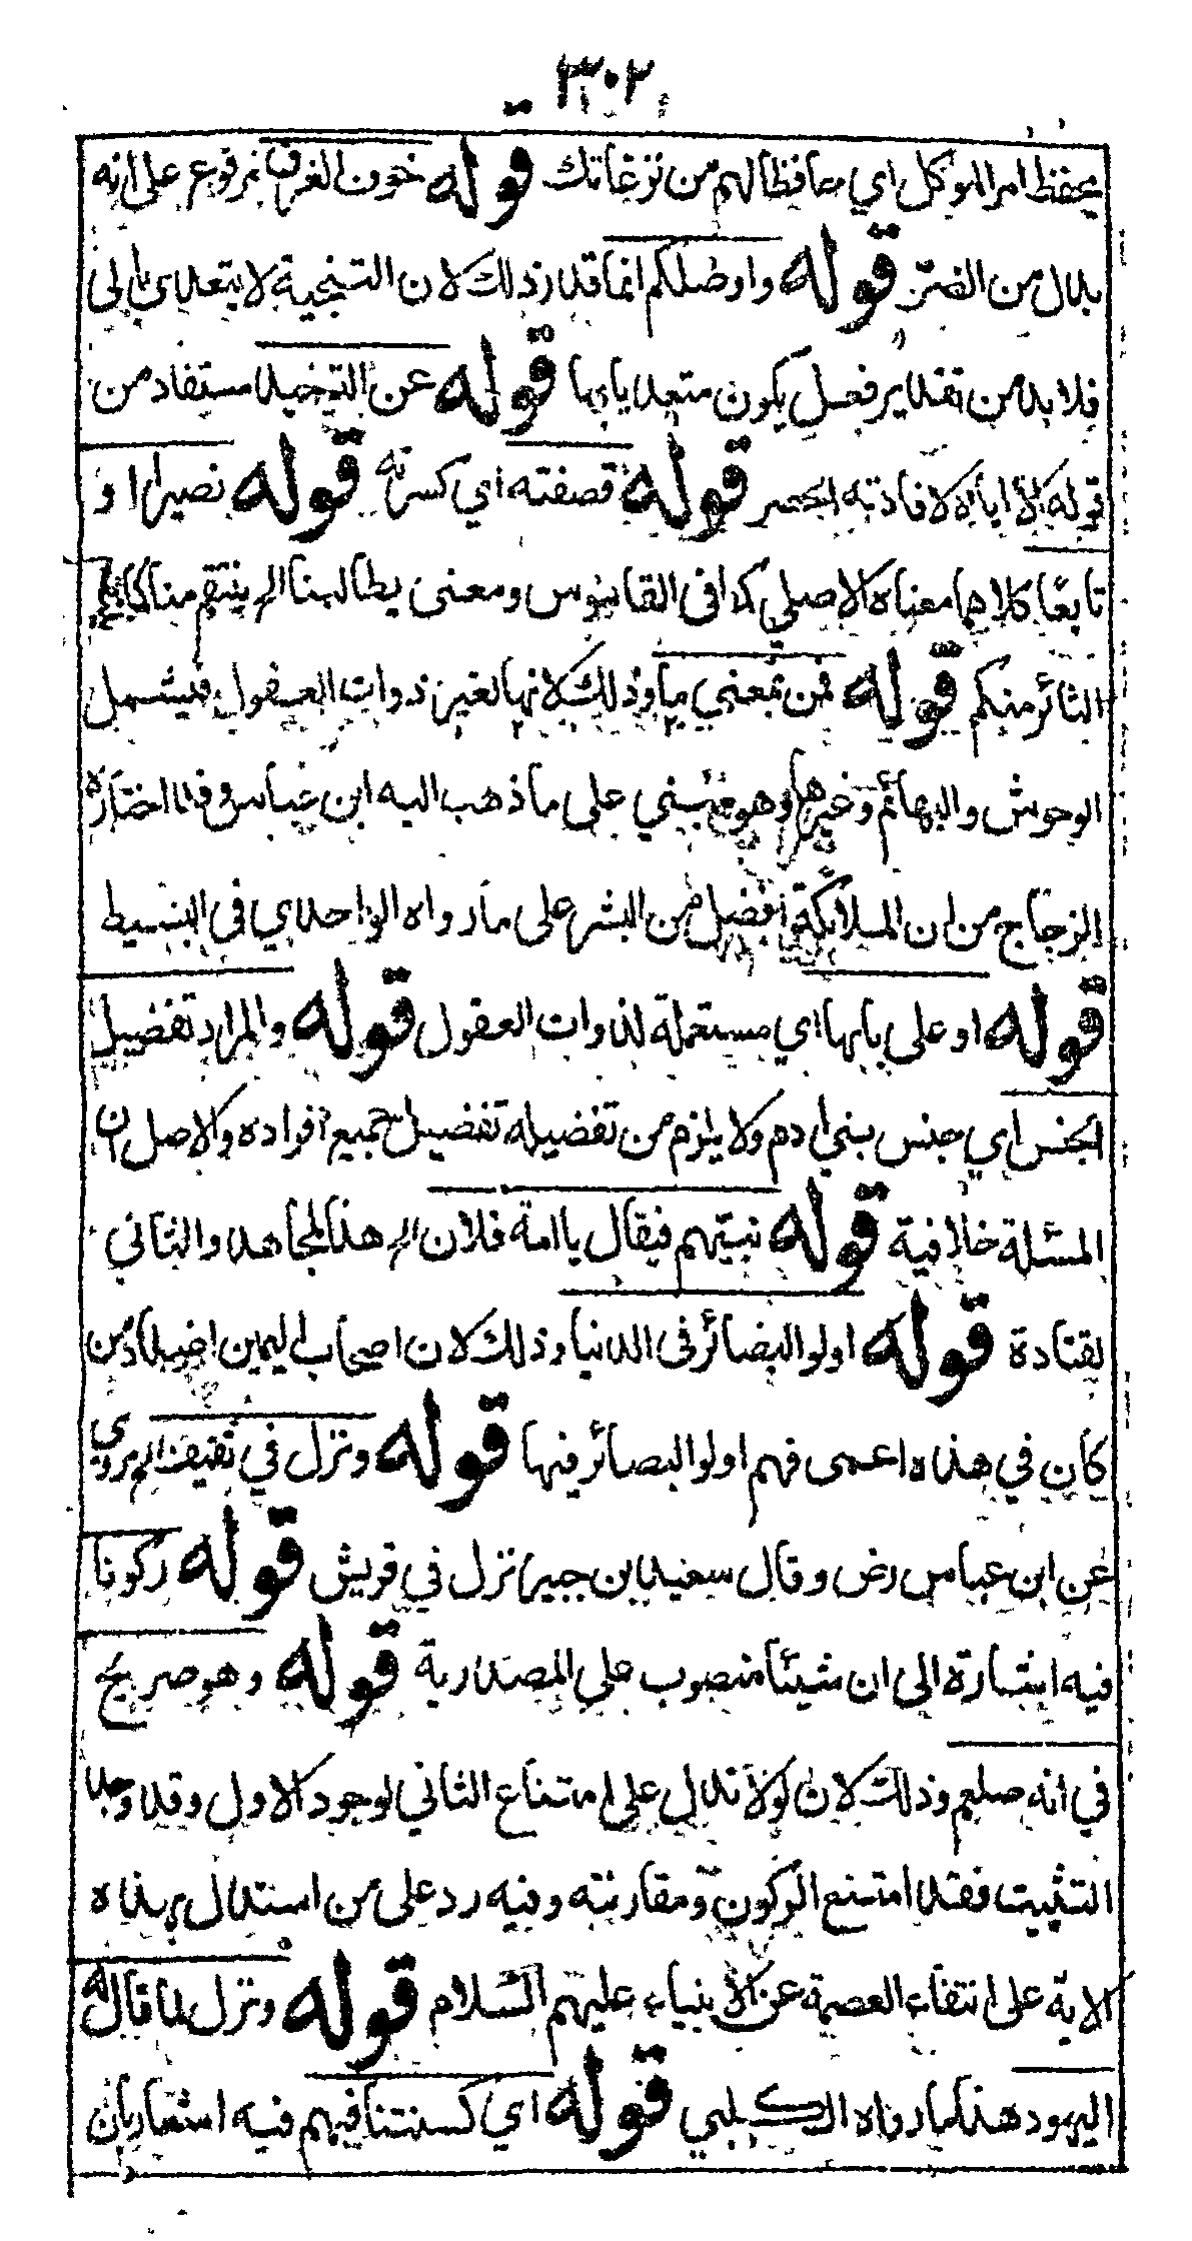 ٣٠٢
يحفظ امر الموكل اي حافظا لهم من نزغاتك قوله خوف الغرق مرفوع على انه
بدل من الضر قوله واوصلكم انما قدر ذلك لان التنجية لا يتعدى بالى
فلا بد من تقدير فعل يكون متعديا بها قوله عن التخييل مستفاد من
قوله الا اياه لافادته الحصر قوله قصفته اي كسرته قوله نصيرا او
تابعا كلاهما معناه الاصلي كذا في القاموس ومعنى يطالبنا الى ينتقم منا
الثائر منكم قوله فمن بمعنى ما وذلك لانها لغير ذوات العقول فيشمل
الوحوش والبهائم وغيرها وهو مبني على ما ذهب اليه ابن عباس وفيما اختاره
الزجاج من ان الملائكة افضل من البشر على ما رواه الواحدي في البسيط
قوله او على بابها اي مستعملة لذوات العقول قوله والمراد تفضيل
الجنس اي جنس بني ادم ولا يلزم من تفضيله تفضيل جميع افراده والاصل ان
المسئلة خلافية قوله نبيهم فيقال يا امة فلان الى هذا لمجاهد والثاني
لقتادة قوله اولو البصائر في الدنيا وذلك لان اصحاب اليمين من
كان في هذه اعمى فهم اولو البصائر فيها قوله ونزل في ثقيف الى مروي
عن ابن عباس رض وقال سعيد ابن جبير نزل في قريش قوله ركونا
فيه اشارة الى ان شيئا منصوب على المصدرية قوله وهو صريح
في انه صلعم وذلك لان لولا تدل على امتناع الثاني لوجود الاول وقد وجد
التثبيت فقد امتنع الركون ومقاربته وفيه رد على من استدل بهذه
الاية على انتفاء العصمة عن الانبياء عليهم السلام قوله ونزل لما قال له
اليهود هذا ما رواه الكلبي قوله اي كسنتنا فيهم فيه اشعار بان